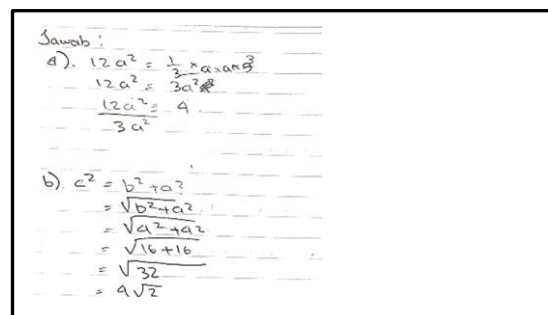 Jawab :
a). 12a² = 1/3 × a × a × 9
12a² = 3a²
12a²/3a² = 4
b) c² = b² + a²
= √b² + a²
= √a² + a²
= √16 + 16
= √32
= 4√2